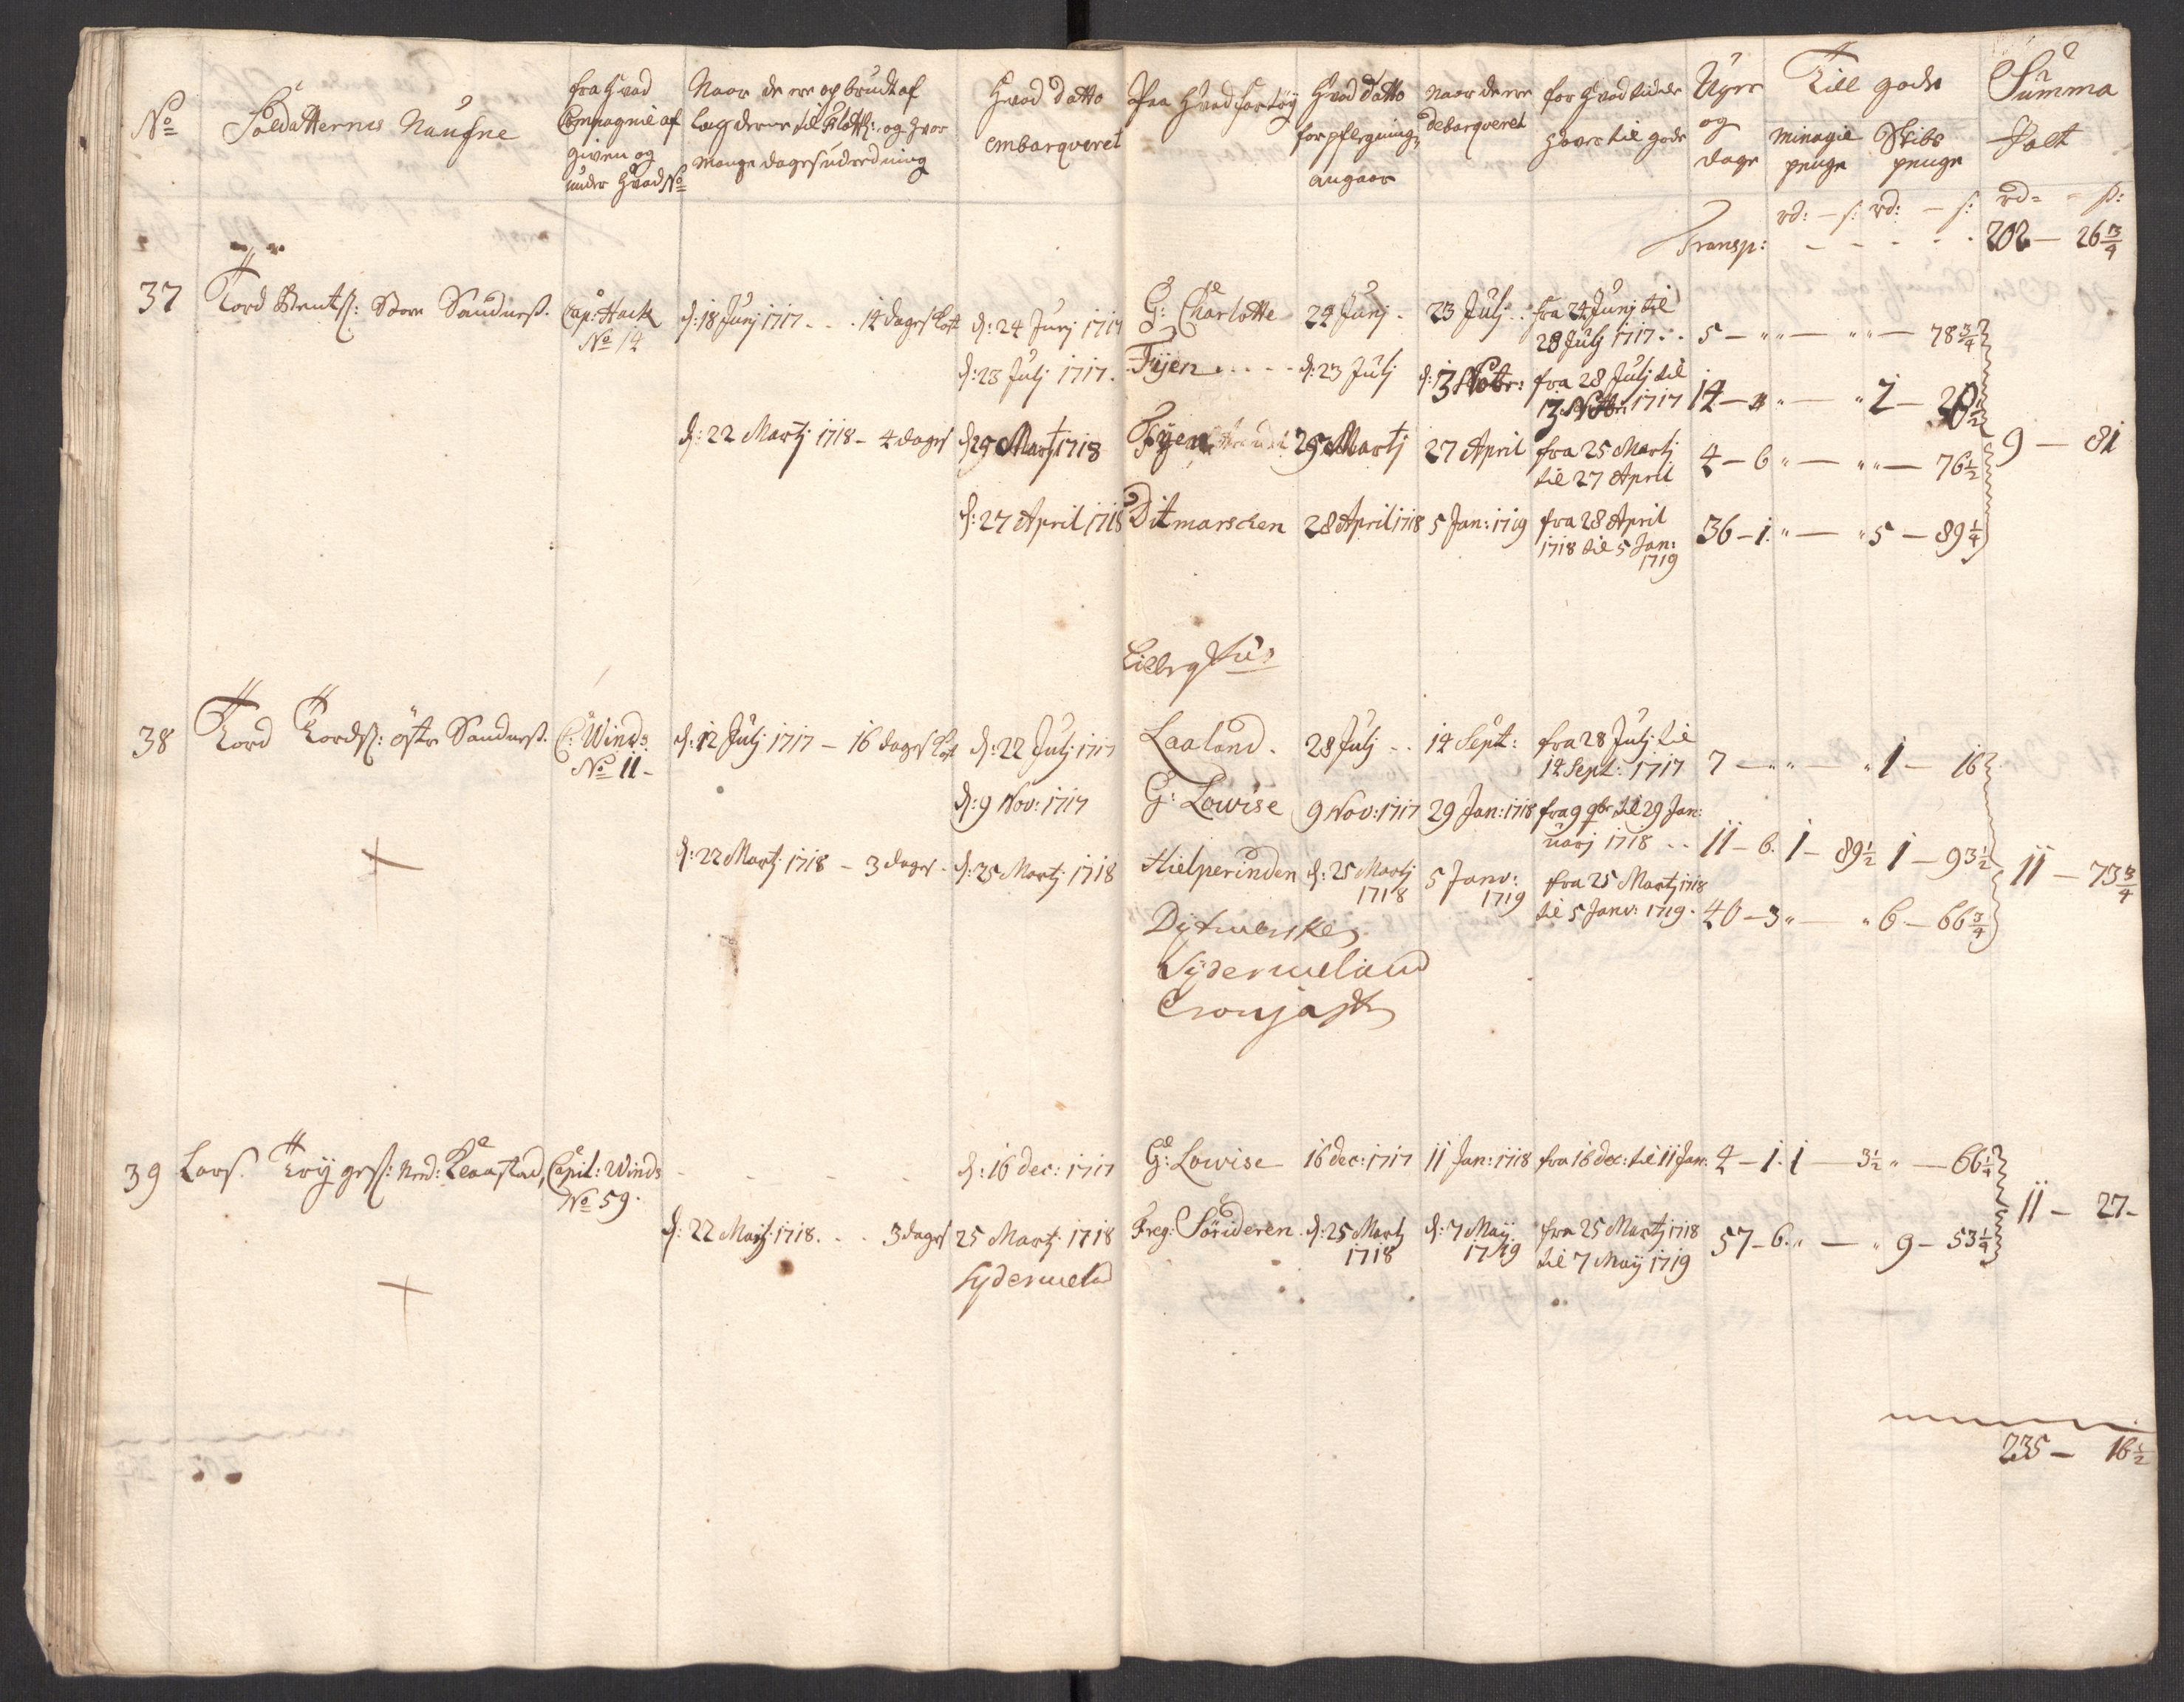 No
Soldatternes Naufne
fra hvad Compagnie af given og under hvad No
Naar de ere opbrudt af og hvor mange dages udredning
Hvad datto embarqveret
Paa hvad fartøy
Hvad datto forpflegning angaar
naar de ere debarqveret
for hvad tid de haver til gode
Uger og dage
Till gode
minagie penge
Skibs penge
Summa
rd: - s: rd: - s: rd: - s:
Transp: - - - - - 202 - 26 3/4
37 Tord Bentß: Store Sandness. Cap: Hack d: 18 Junj 1717 . . . 14 dages kost d: 24 Junj 1717 G: Charlotte 24 Junj . 23 Julj . . fra 24 Junj til
No 14 28 Julj 1717 . . 5 - " " - " " - 78 3/4
d: 23 Julj 1717 . Fyen . . . . . d: 23 Julj d: 13 Notbr: fra 28 Julj til
13 Notbr: 1717 14 - " - " 2 -
d: 22 Martj 1718 - 4 dages d 25 Martj 1718 Fyen 25 Martj 27 April fra 25 Martj
til 27 April 4 - 6 " - " " - 76 1/2 9 - 81
d: 27 April 1718 Ditmarschen 28 April 1718 5 Jan: 1719 fra 28 April
1718 til 5 Jan:
1719 36 - 1. " - " 5 - 89 1/4
38 Tord Tordß: østre Sandness. C: Winds d: 12 Julj 1717 - 16 dages kost d: 22 Julj 1717 Laaland . 28 Julj . . 14 Sept: fra 28 Julj til
No 11 - 14 Sept: 1717 7 - " " - " 1 - 16
d: 9 Nov: 1717 G: Lowise 9 Nov: 1717 29 Jan: 1718 fra 9 9br til 29 Jan:
uarj 1718 . . 11 - 6. 1 - 89 1/2 1 - 93 1/2
d: 22 Martj 1718 - 3 dages . d: 25 Martj 1718 Hielperinden d: 25 Martj 1718 5 Janv: 1719 fra 25 Martj 1718
til 5 Janv: 1719 . 40 - 3 " - " 6 - 66 3/4 11 - 73 3/4
Dytmerske
Sydermeland
Cronjagt
39 Lars Trygeß: ned: Klaastad, Capit: Winds - - - - d: 16 dec: 1717 G: Lowise 16 dec: 1717 11 Jan: 1718 fra 16 dec: til 11 Jan: 4 - 1. 1 - 3 1/2 " - 66 1/4
No 59 .
d: 22 Martj 1718 . . . 3 dages 25 Martj 1718 Freg: Söridderen . d: 25 Martj 1718 d: 7 Maij 1719 fra 25 Martj 1718
til 7 Maij 1719 57 - 6. " - " 9 - 53 1/4 11 - 27 -
Sydermeland
235 - 16 1/2